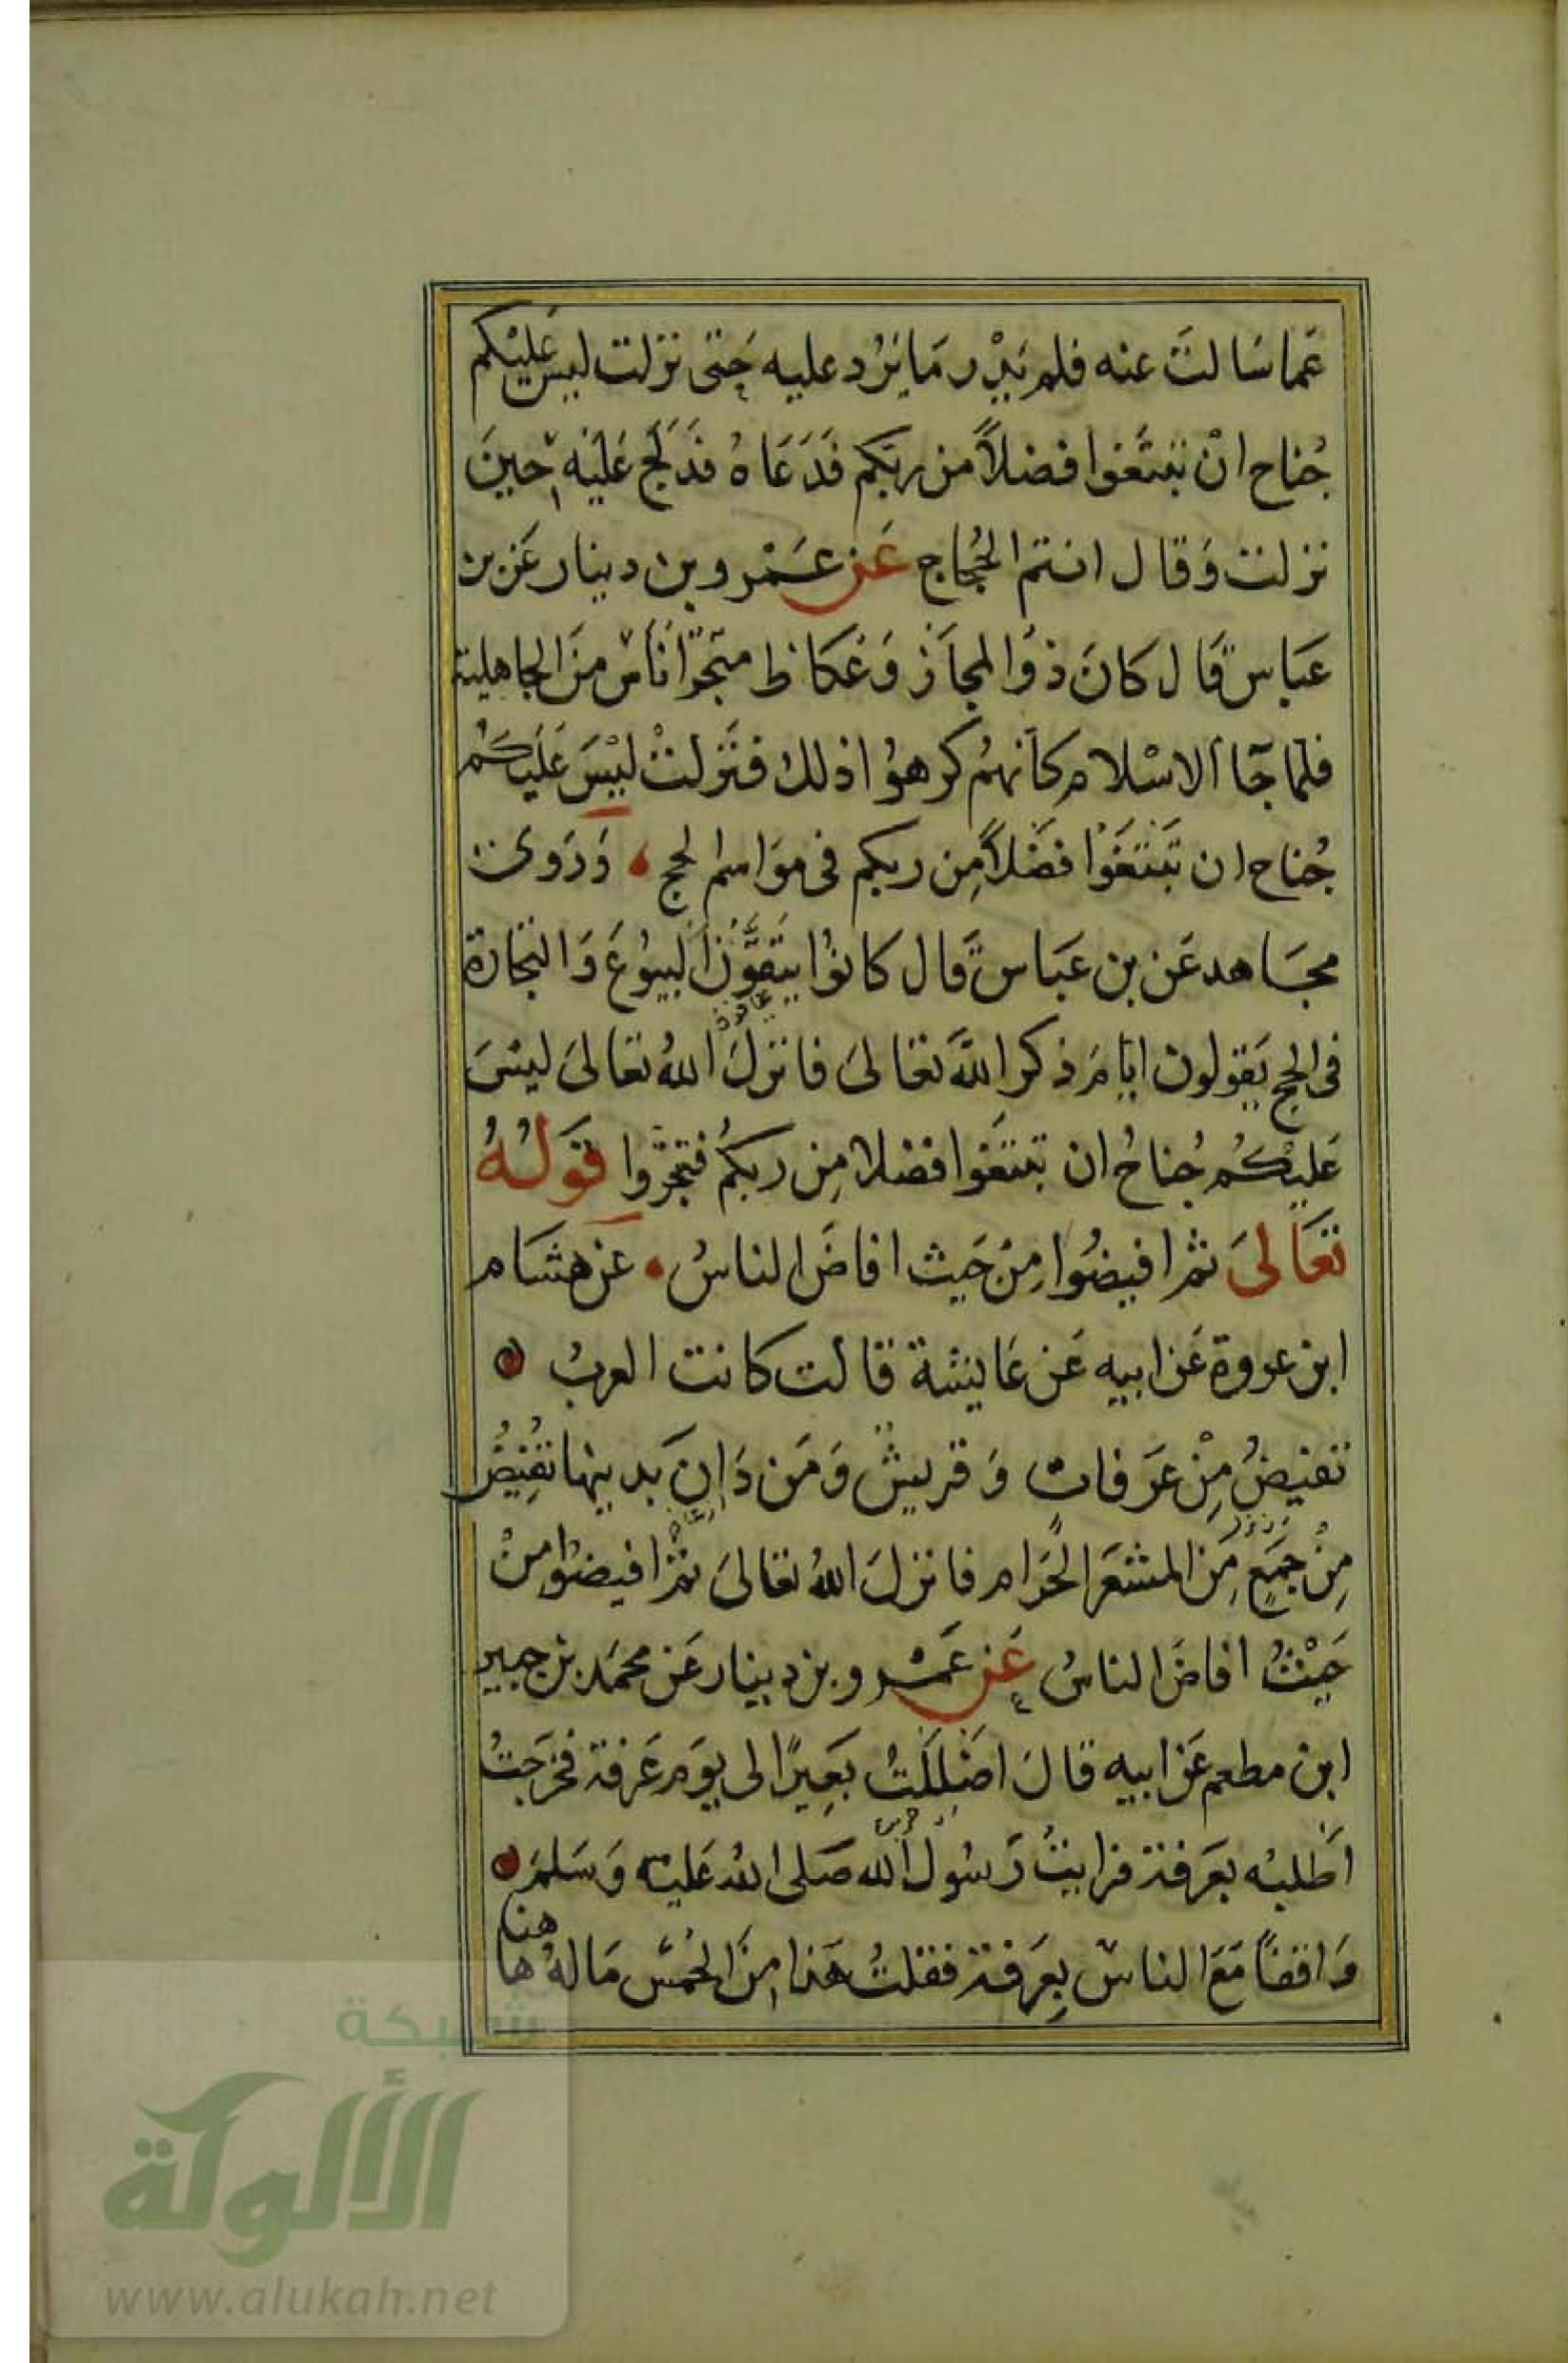 عَما سَالتَ عنه فلم يَدْر مَا يَرُد عليه حَتى نزلت ليسَ عَليْكم
جُناح انْ تبتَغوا فضلاً من ربكم فَدَعَاهُ فَدَلَج عَليْه حينَ
نزلت وَقال انتم الحُجاج عَن عَمْرو بن دينار عَن بن
عَباس قال كانَ ذوُ المجاَز وَعُكاظ متجَر اُناس منَ الجاهلية
فلما جَا الاسْلام كاَنهمُ كرهوُا ذلك فنَزلتْ ليْسَ عَليكُم
جُناح ان تَبْتَغَوْا فضَلاً مِن ربكم فى موَاسم الحج وَرَوىَ
مجَاهد عَن بن عَبَاس قَال كانوُا يَتقوُّنَ البيوُعَ وَالتجَارة
فى الحج يَقولون ايامَ ذكر اللهَ تعَالىَ فانزلَ اللهُ تعَالىَ ليسَ
عَليْكُم جُناحُ ان تبتَغوا فضلا مِن ربكُم فتجرُوا قوَلهُ
تعَالىَ ثم افيضُوا مِنْ حَيث افاضَ الناسُ عَن هشَام
ابن عروة عَن ابيه عَن عَايشة قالت كانت العربُ
تفيضُ مِنْ عرَفات وَقريشُ وَمَن دَانَ بدينها تفُيضُ
مِنْ جمَعٍ مِن المشعَر الحَرَام فانزلَ اللهُ تعالىَ ثم افيضوُا مِنْ
حَيْثُ افاضَ الناسُ عَن عَمْرو بن دينار عَن محمَد بن جبير
ابن مطعم عَن ابيه قالَ اضْللَتُ بَعِيرًا لى يوَم عَرفة فخرَجتُ
اَطلبُه بعَرفة فرايتُ رَسُول الله صَلى اللهُ عَليْه وَسَلمَ
وَاقفاً مَعَ الناس بِعرَفة فقلتُ هَذا مِنَ الحُمْس مَا لهُ هَا
هنا
شبكة
الألوكة
www.alukah.net